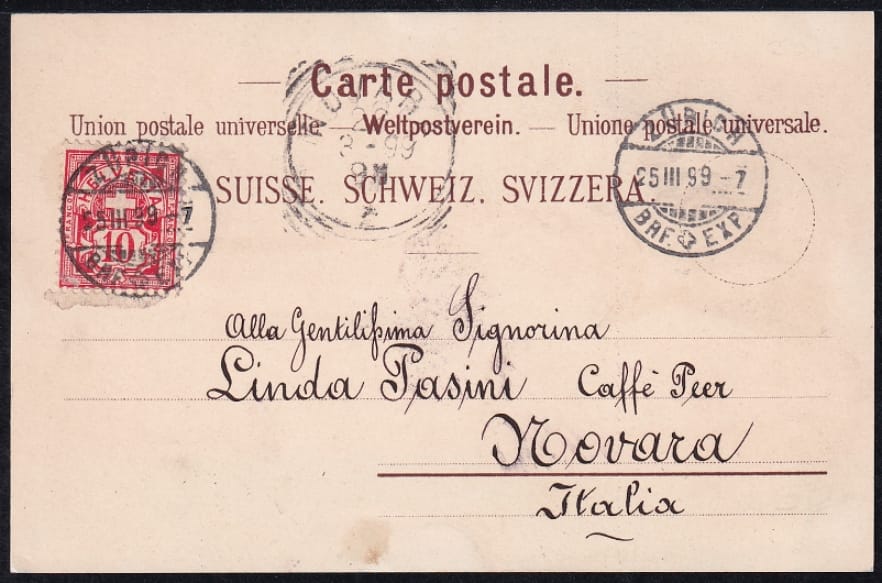 Carte postale.
Union postale universelle — Weltpostverein. — Unione postale universale.
SUISSE. SCHWEIZ. SVIZZERA.
NOVARA
26
3 - 99
9
ZÜRICH
25 III 99 - 7
BRF. EXP.
FRANCO
HELVETIA
10
25 III 99 - 7
BRF. EXP.
Alla Gentilißima Signorina
Linda Pasini Caffè Peer
Novara
Italia